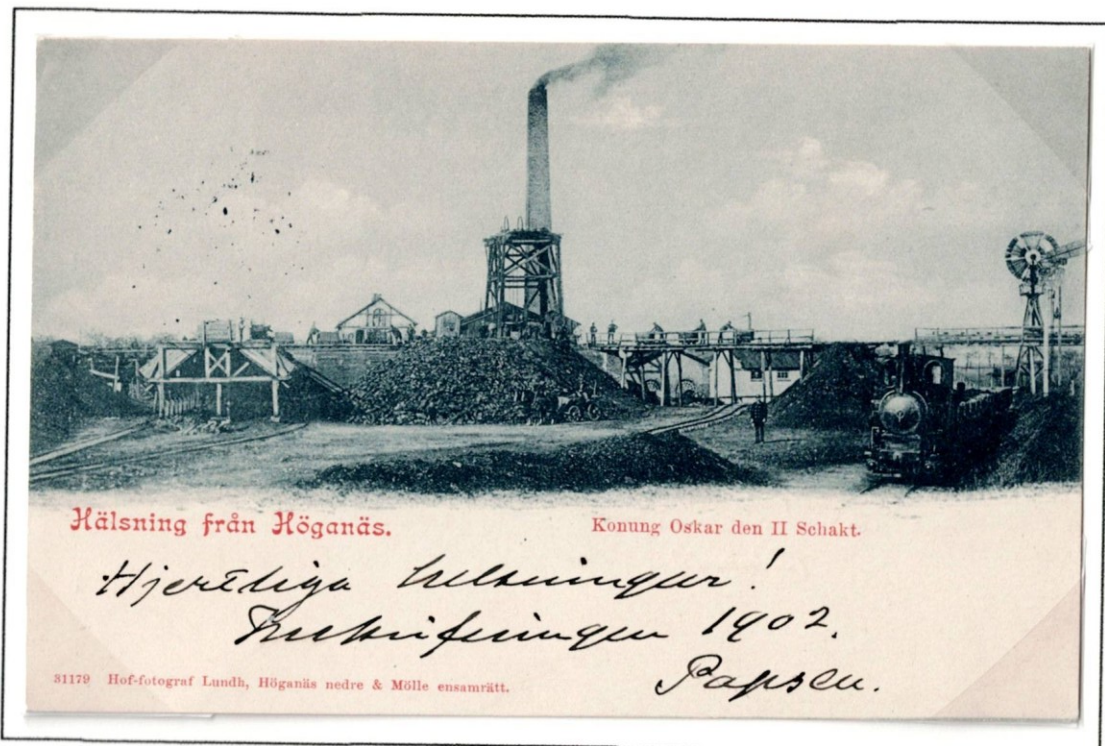 Hälsning från Höganäs.
Konung Oskar den II Schakt.
Hjertliga helsningar!
1902.
Papsen.
31179 Hof-fotograf Lundh, Höganäs nedre & Mölle ensamrätt.